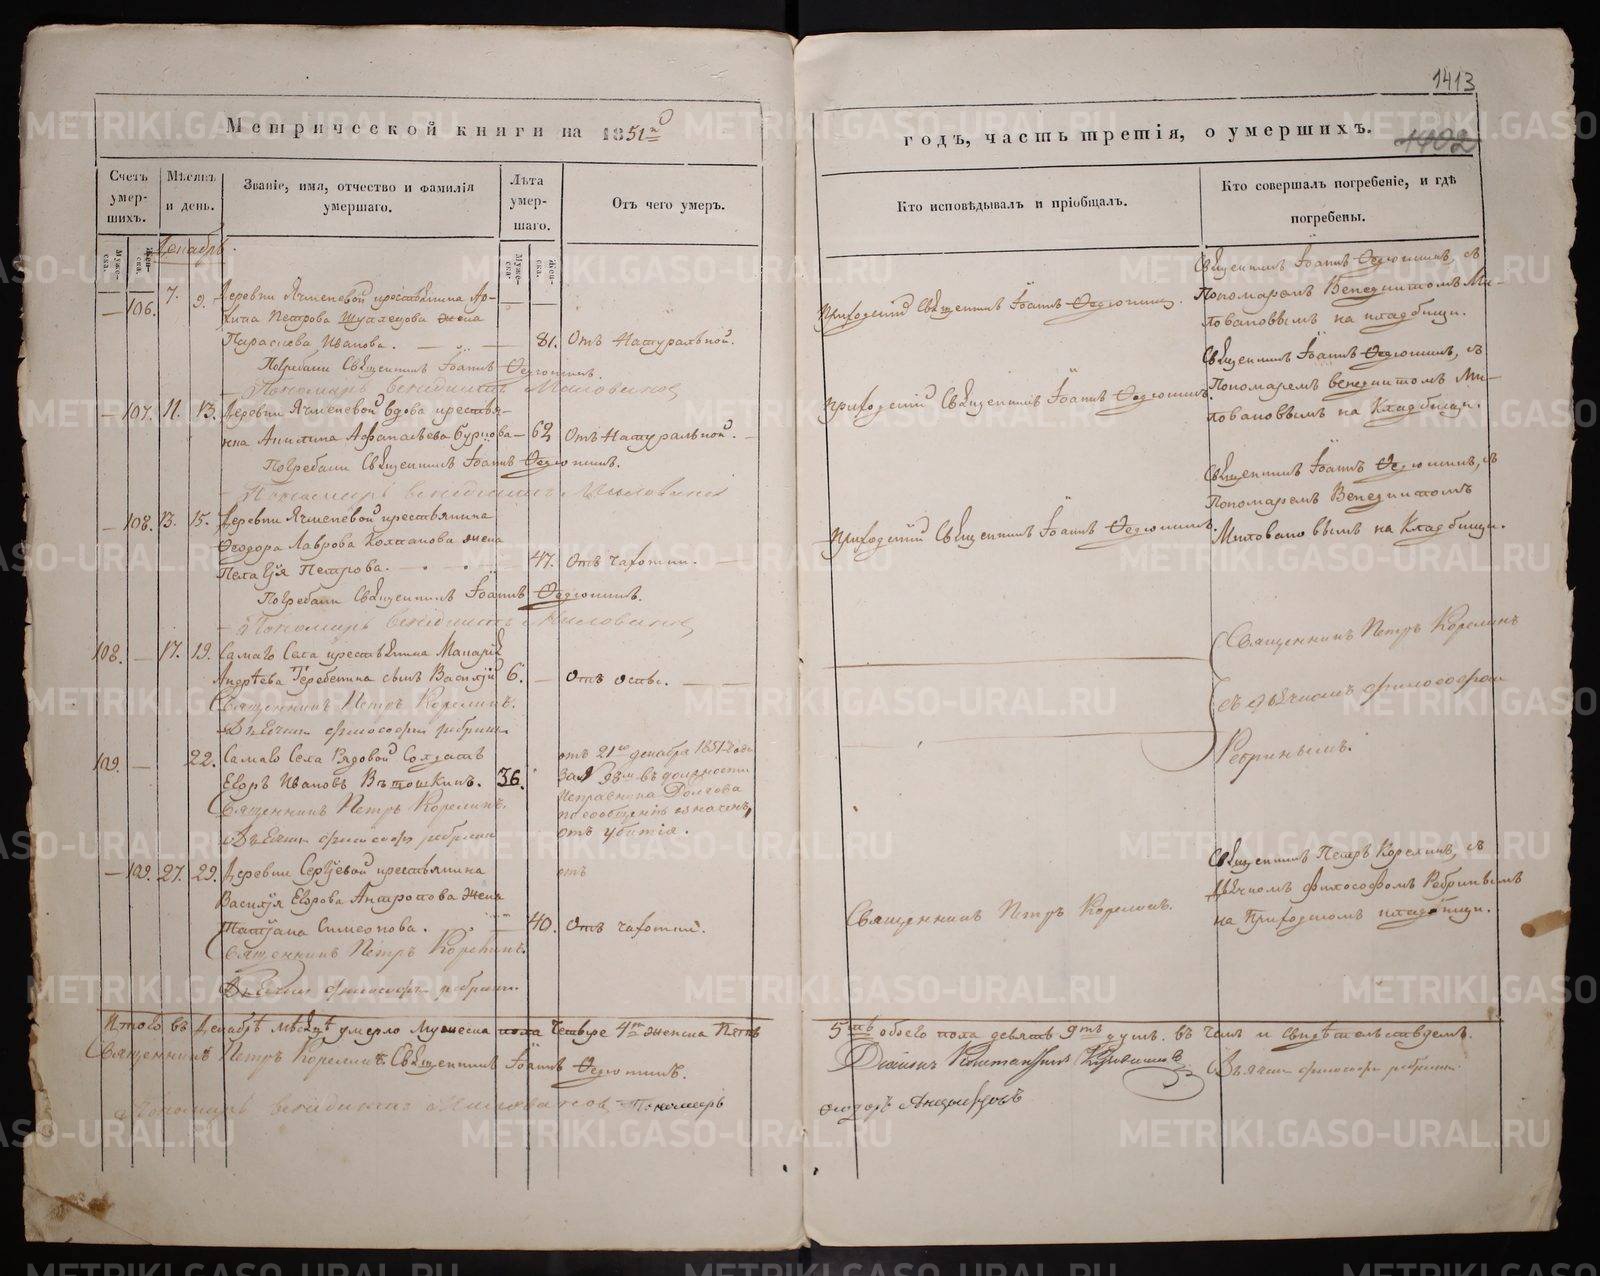 1413
1402
Метрической книги на 1851й
годъ, часть третія, о умершихъ.
Счетъ умер-шихъ.
Мѣсяцъ и день.
Званіе, имя, отчество и фамилія умершаго.
Лѣта умер-шаго.
Отъ чего умеръ.
Кто исповѣдывалъ и пріобщалъ.
Кто совершалъ погребеніе, и гдѣ погребены.
Муже-ска.
Жен-ска.
Муже-ска.
Жен-ска.
Декабрь.
— 106. 7. 9. Деревни Ячменевой крестьянина Ар-
хипа Петрова жена
Параскева Иванова. — 81. Отъ Натуральной.
Погребали Священникъ Іоаннъ Ѳедюшинъ.
Пономарь Венедиктъ Миловановъ
Приходскій Священникъ Іоаннъ Ѳедюшинъ.
Священникъ Іоаннъ Ѳедюшинъ, съ
Пономаремъ Венедиктомъ Ми-
ловановвымъ на кладбищи.
— 107. 11. 13. Деревни Ячменевой вдова крестья-
нка Акилина Афанасьева Бурцова — 62 Отъ Натуральной.
Погребали Священникъ Іоаннъ Ѳедюшинъ.
Пономарь Венедиктъ Миловановъ
Приходскій Священникъ Іоаннъ Ѳедюшинъ.
Священникъ Іоаннъ Ѳедюшинъ, съ
Пономаремъ Венедиктомъ Ми-
ловановвымъ на Кладбищи.
— 108. 13. 15. Деревни Ячменевой крестьянина
Ѳеодора Лаврова Колпакова жена
Наталія Петрова. — 47. Отъ чахотки.
Погребали Священникъ Іоаннъ Ѳедюшинъ.
Пономарь Венедиктъ Миловановъ
Приходскій Священникъ Іоаннъ Ѳедюшинъ.
Священникъ Іоаннъ Ѳедюшинъ, съ
Пономаремъ Венедиктомъ
Миловановвымъ на Кладбищи.
108. — 17. 19. Самаго Села крестьянина Макарія
Андрѣева Теребенина сынъ Василій 6. — Отъ оспы.
Священникъ Петръ Корелинъ.
Дьячекъ философъ Ребринъ
Священникъ Петръ Корелинъ
съ дьячкомъ философомъ
Ребринымъ.
109. — 22. Самаго Села Рядовой Солдатъ
Егоръ Ивановъ Вѣтошкинъ. 36.
отъ 21го декабря 1851 года
за № 98м въ должности
Исправника Долгова
по сообщенію означенъ,
отъ убитія.
Священникъ Петръ Корелинъ.
Дьячекъ философъ Ребринъ
— 109. 27. 29. Деревни Сергѣевой крестьянина
отъ
Василія Егорова Антропова жена
Татіана Симеонова. — 40. Отъ чахотки.
Священникъ Петръ Корелинъ.
Дьячекъ философъ Ребринъ.
Священникъ Петръ Корелинъ.
Священникъ Петръ Корелинъ, съ
Дьячкомъ Философомъ Ребринымъ
на Приходскомъ кладбищи.
Итого въ Декабрѣ мѣсяцѣ умерло мужеска пола четыре 4ре женска Пять
5ть обоего пола девять 9ть душъ. въ чемъ и свидѣтельствуемъ.
Священникъ Петръ Корелинъ. Священникъ Іоаннъ Ѳедюшинъ.
Діаконъ Константинъ
Дьячекъ философъ Ребринъ
Пономарь Венедиктъ Миловановъ Пономарь